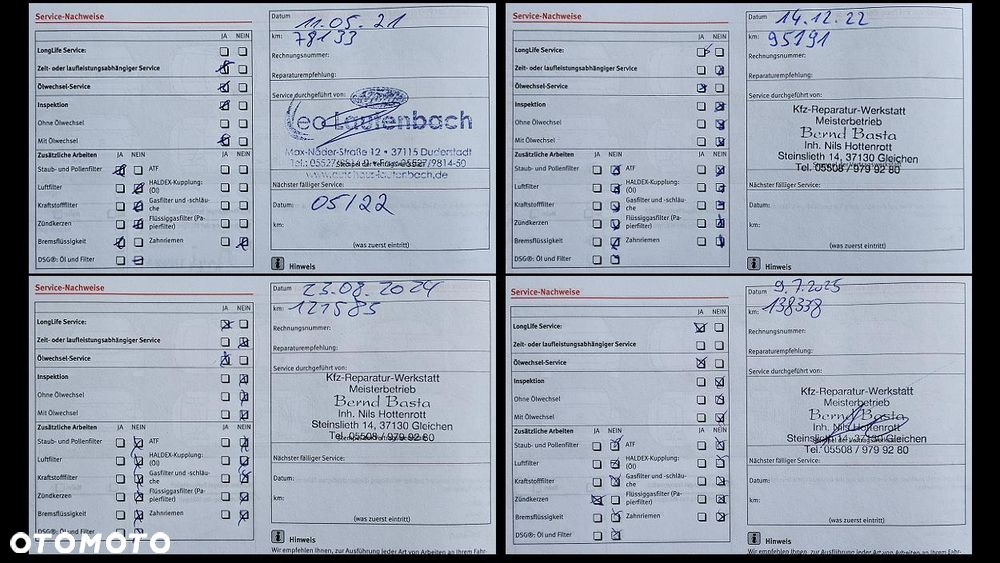 Service-Nachweise
JA NEIN
LongLife Service:
Zeit- oder laufleistungsabhängiger Service
Ölwechsel-Service
Inspektion
Ohne Ölwechsel
Mit Ölwechsel
Zusätzliche Arbeiten JA NEIN JA NEIN
Staub- und Pollenfilter ATF
Luftfilter HALDEX-Kupplung: (Öl)
Kraftstofffilter Gasfilter und -schläu-
che
Zündkerzen Flüssiggasfilter (Pa-
pierfilter)
Bremsflüssigkeit Zahnriemen
DSG®: Öl und Filter
Datum 11.05.21
km: 78133
Rechnungsnummer:
Reparaturempfehlung:
Service durchgeführt von:
Leo Lautenbach
Max-Näder-Straße 12 • 37115 Duderstadt
www.autohaus-lautenbach.de
Nächster fälliger Service:
Datum: 05/22
km:
(was zuerst eintritt)
Hinweis
Service-Nachweise
JA NEIN
LongLife Service:
Zeit- oder laufleistungsabhängiger Service
Ölwechsel-Service
Inspektion
Ohne Ölwechsel
Mit Ölwechsel
Zusätzliche Arbeiten JA NEIN JA NEIN
Staub- und Pollenfilter ATF
Luftfilter HALDEX-Kupplung: (Öl)
Kraftstofffilter Gasfilter und -schläu-
che
Zündkerzen Flüssiggasfilter (Pa-
pierfilter)
Bremsflüssigkeit Zahnriemen
DSG®: Öl und Filter
Datum 14.12.22
km: 95191
Rechnungsnummer:
Reparaturempfehlung:
Service durchgeführt von:
Kfz-Reparatur-Werkstatt
Meisterbetrieb
Bernd Basta
Inh. Nils Hottenrott
Steinslieth 14, 37130 Gleichen
Tel. 05508 / 979 92 80
Nächster fälliger Service:
Datum:
km:
(was zuerst eintritt)
Hinweis
Service-Nachweise
JA NEIN
LongLife Service:
Zeit- oder laufleistungsabhängiger Service
Ölwechsel-Service
Inspektion
Ohne Ölwechsel
Mit Ölwechsel
Zusätzliche Arbeiten JA NEIN JA NEIN
Staub- und Pollenfilter ATF
Luftfilter HALDEX-Kupplung: (Öl)
Kraftstofffilter Gasfilter und -schläu-
che
Zündkerzen Flüssiggasfilter (Pa-
pierfilter)
Bremsflüssigkeit Zahnriemen
DSG®: Öl und Filter
Datum 23.08.2024
km: 121585
Rechnungsnummer:
Reparaturempfehlung:
Service durchgeführt von:
Kfz-Reparatur-Werkstatt
Meisterbetrieb
Bernd Basta
Inh. Nils Hottenrott
Steinslieth 14, 37130 Gleichen
Tel. 05508 / 979 92 80
Nächster fälliger Service:
Datum:
km:
(was zuerst eintritt)
Hinweis
Wir empfehlen Ihnen, zur Ausführung jeder Art von Arbeiten an Ihrem Fahr-
Service-Nachweise
JA NEIN
LongLife Service:
Zeit- oder laufleistungsabhängiger Service
Ölwechsel-Service
Inspektion
Ohne Ölwechsel
Mit Ölwechsel
Zusätzliche Arbeiten JA NEIN JA NEIN
Staub- und Pollenfilter ATF
Luftfilter HALDEX-Kupplung: (Öl)
Kraftstofffilter Gasfilter und -schläu-
che
Zündkerzen Flüssiggasfilter (Pa-
pierfilter)
Bremsflüssigkeit Zahnriemen
DSG®: Öl und Filter
Datum 9.7.2025
km: 138338
Rechnungsnummer:
Reparaturempfehlung:
Service durchgeführt von:
Kfz-Reparatur-Werkstatt
Meisterbetrieb
Bernd Basta
Inh. Nils Hottenrott
Steinslieth 14, 37130 Gleichen
Tel. 05508 / 979 92 80
Nächster fälliger Service:
Datum:
km:
(was zuerst eintritt)
Hinweis
Wir empfehlen Ihnen, zur Ausführung jeder Art von Arbeiten an Ihrem Fahr-
OTOMOTO